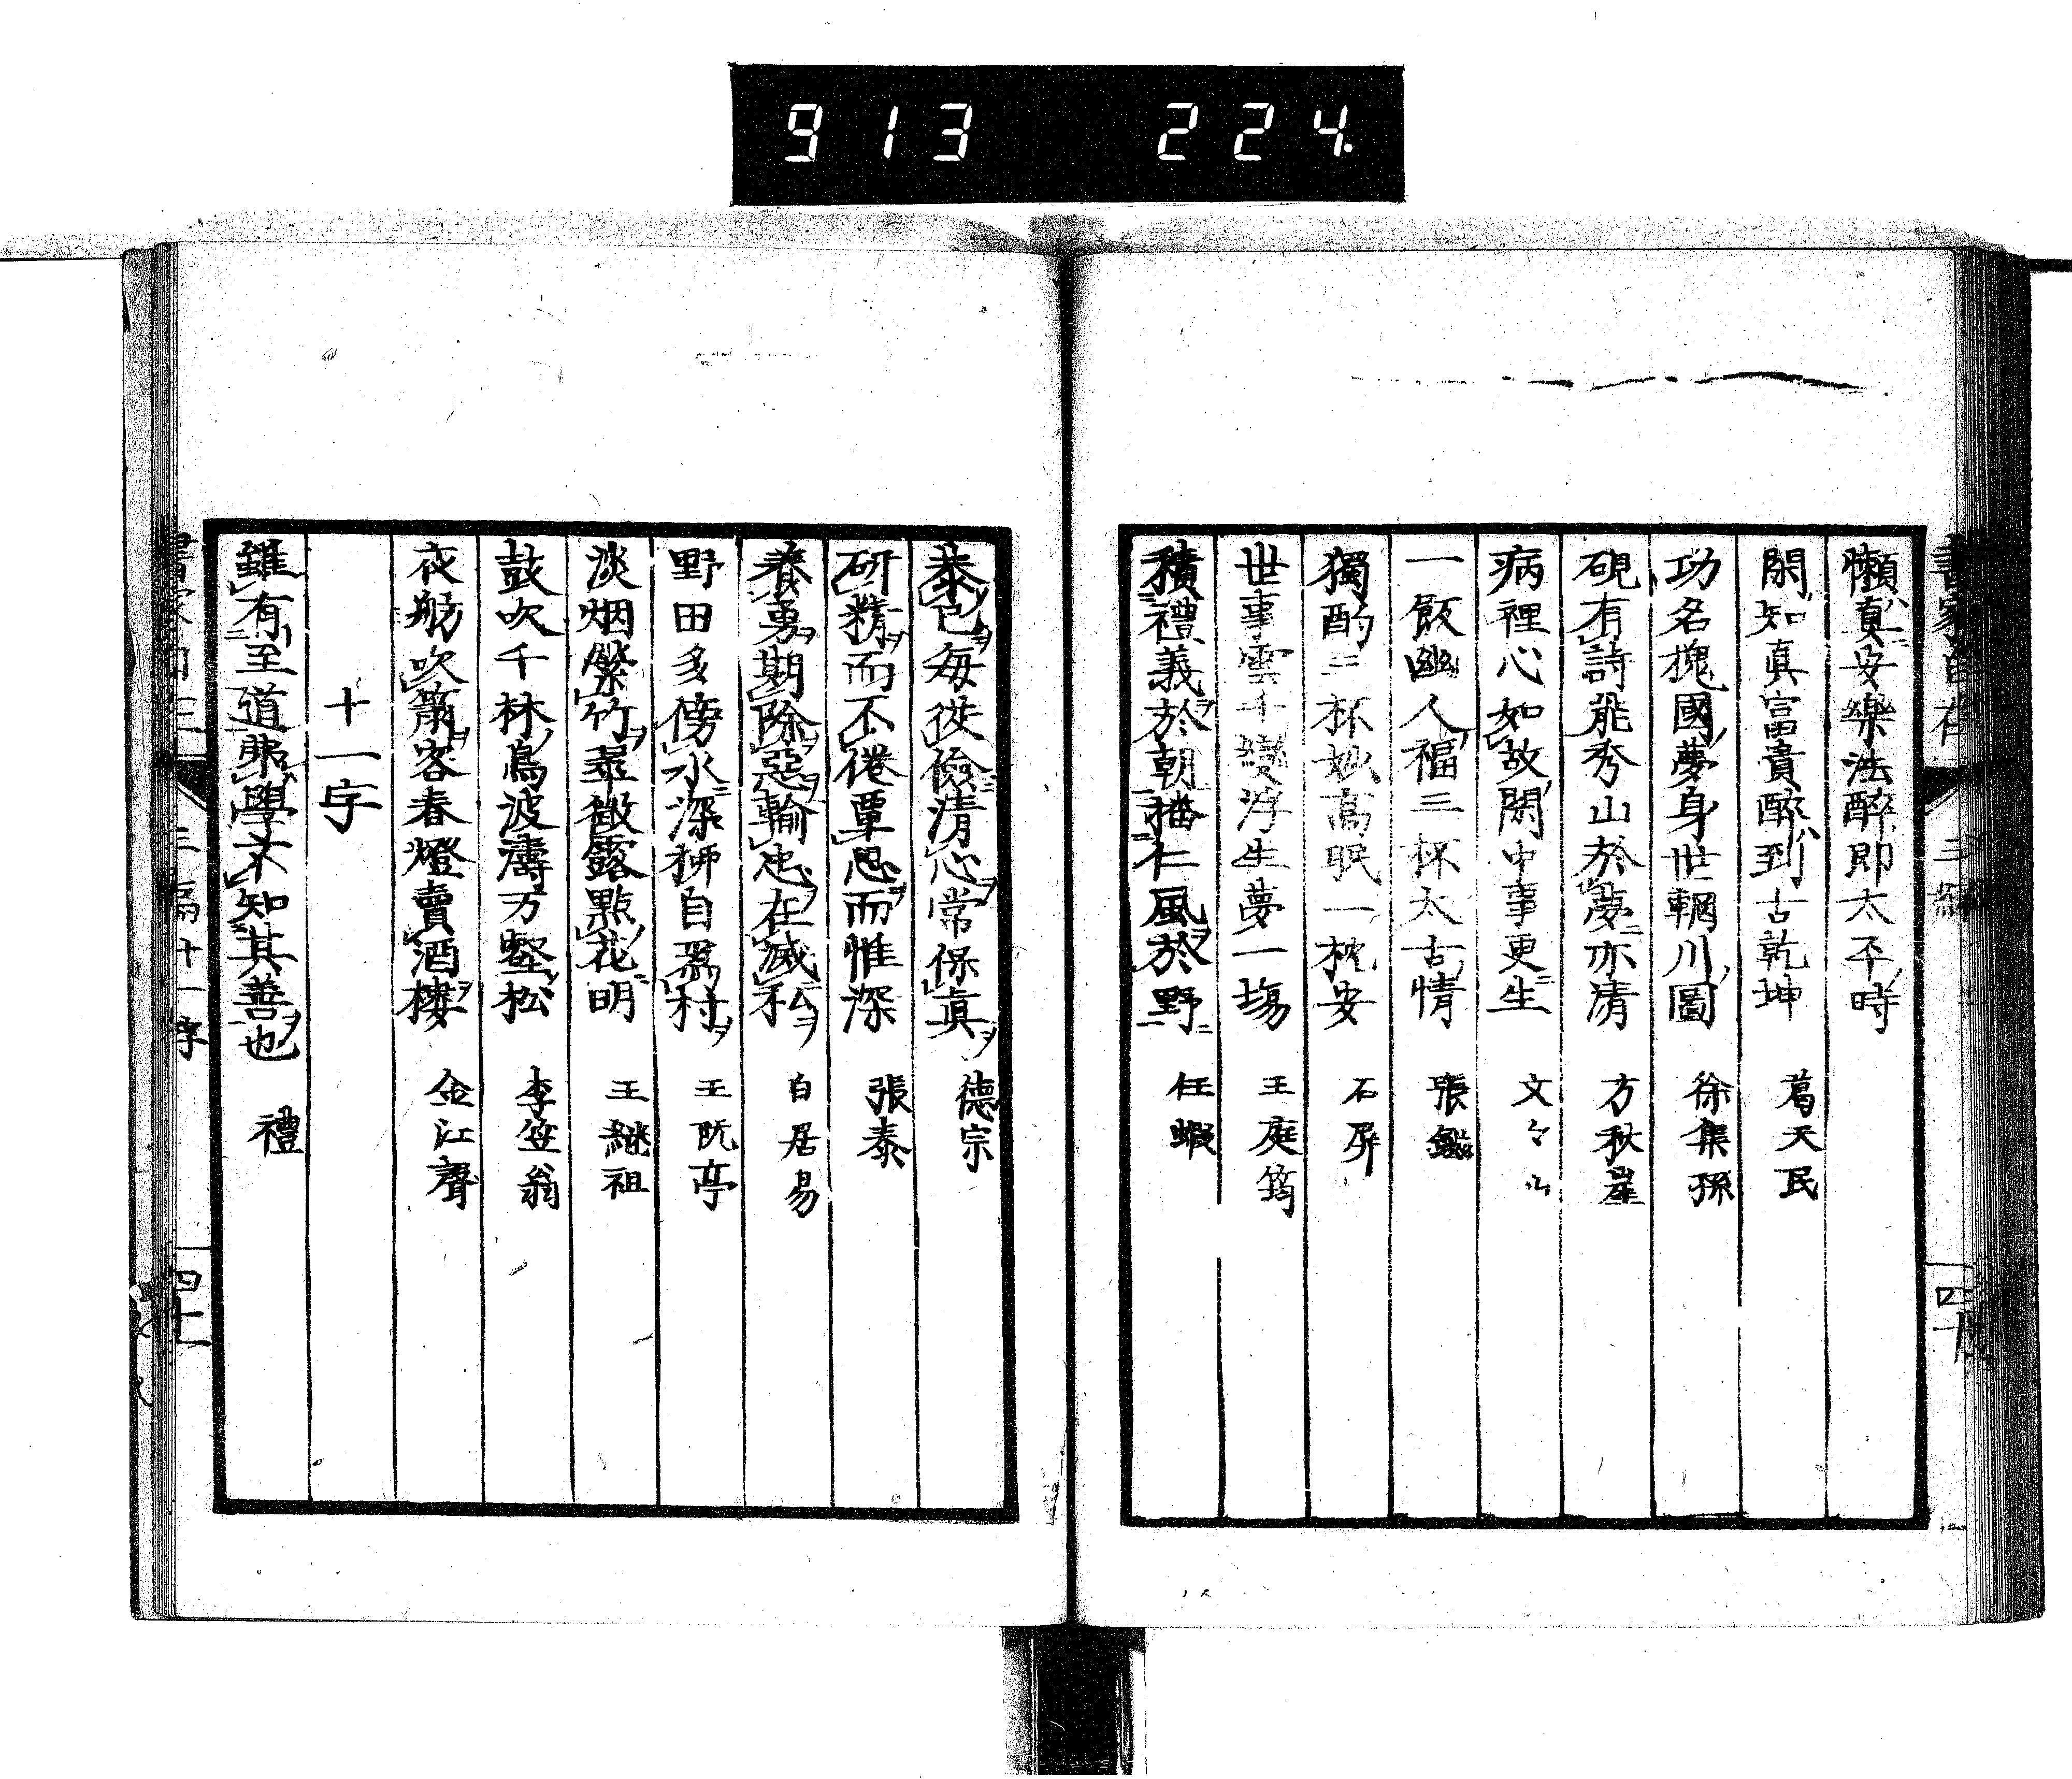 913 224.
懶真安樂法醉即太平時
閑知真富貴醉到古乾坤 葛天民
功名槐國夢身世輞川圖 徐集孫
硯有詩能秀山於夢亦清 方秋崖
病裡心如故閑中事更生 文々山
一飯幽人福三杯太古情 張鎡
獨酌三杯妙高眠一枕安 石屏
世事雲千變浮生夢一場 王庭筠
積禮義於朝播仁風於野 任蝦
恭己每從儉清心常保真 德宗
研精而不倦覃思而惟深 張泰
養勇期除惡輸忠在滅私 白居易
野田多傍水深柳自為村 王阮亭
淡烟縈竹翠微露點花明 王継祖
鼓吹千林鳥波濤万壑松 李笠翁
夜舫吹簫客春燈賣酒樓 金江聲
十一字
雖有至道弗學不知其善也 禮
三編十一字
四十一